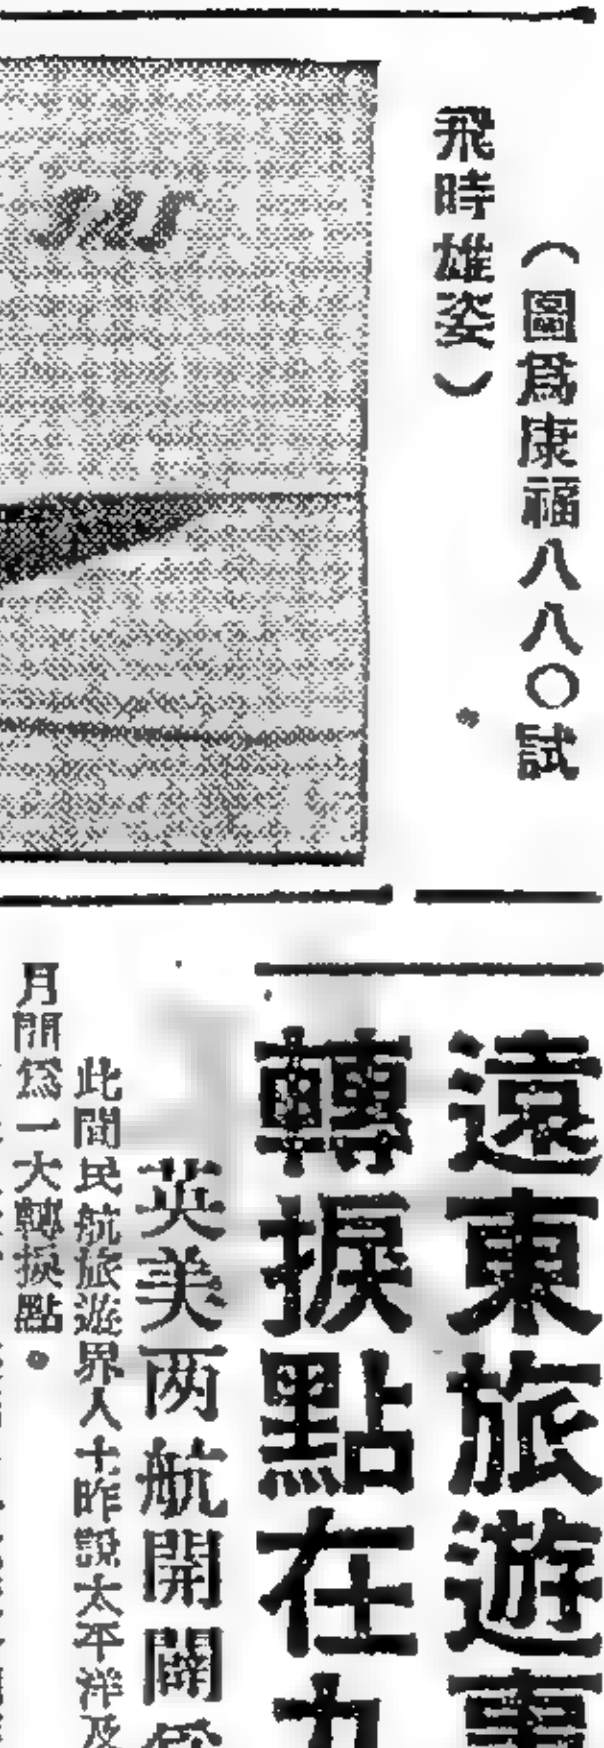 （圖爲康福八八〇試
飛時雄姿）
SAS
遠東旅遊事
轉捩點在九
英美两航開闢
此間民航旅遊界人士昨說太平洋及
月間爲一大轉捩點。